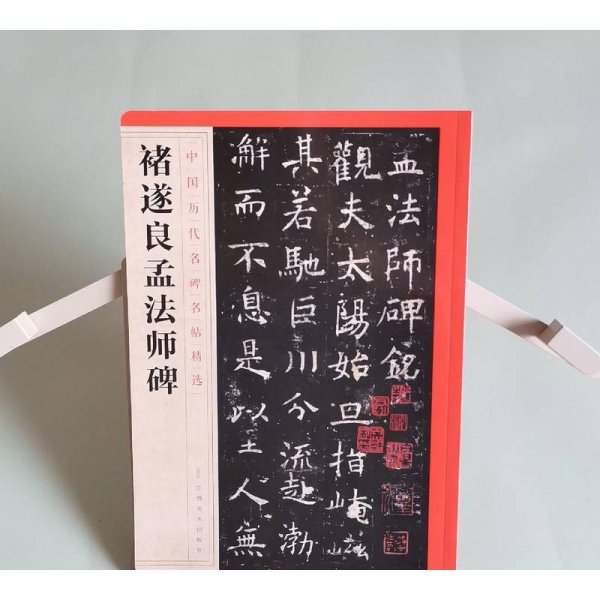 褚遂良孟法师碑
中国历代名碑名帖精选
江西美术出版社
孟法師碑銘
觀夫太陽始旦指崦嵫
其若馳巨川分流赴渤
澥而不息是以至人無